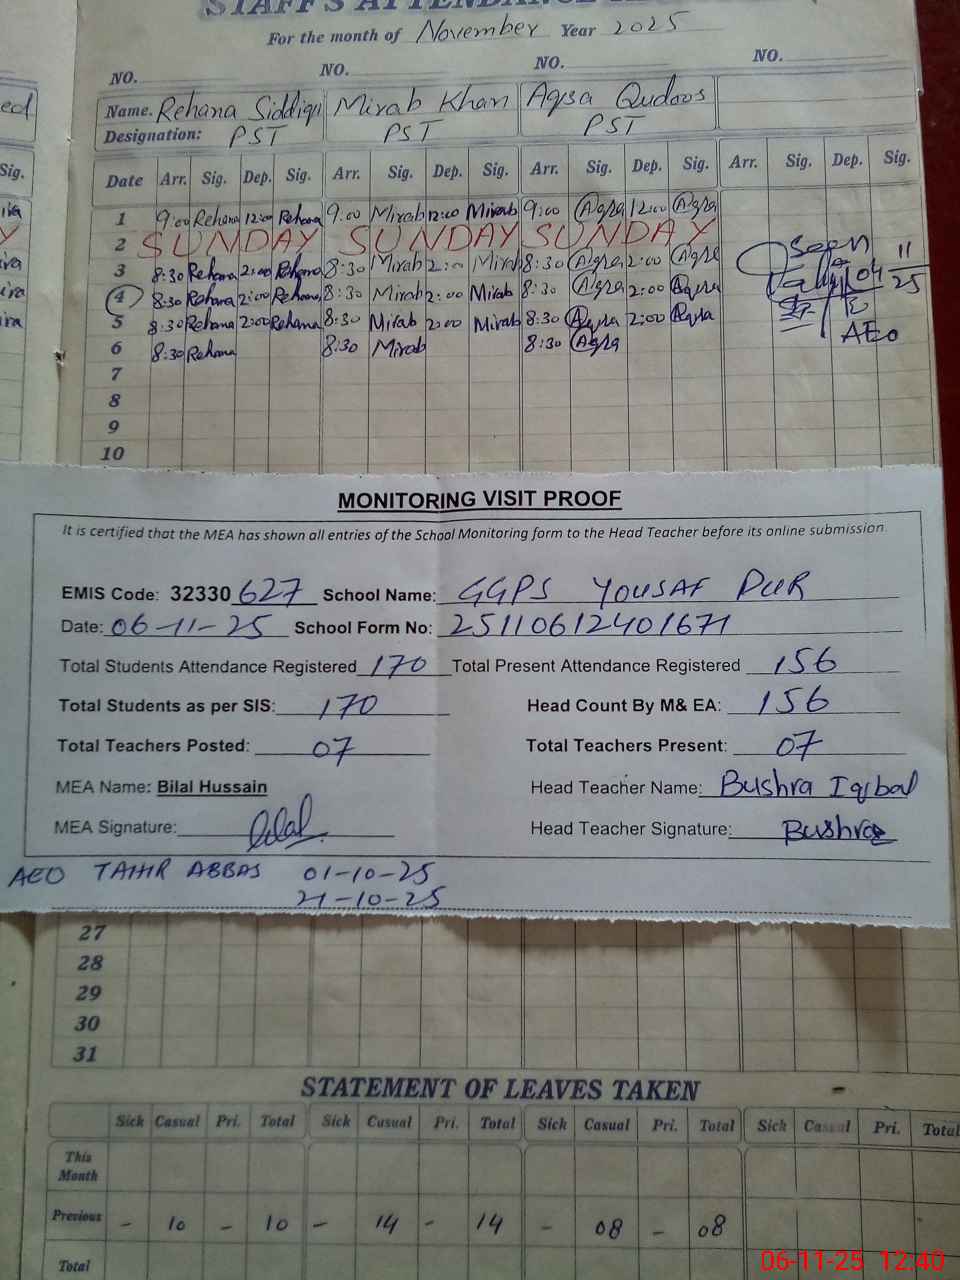 STAFF'S ATTENDANCE
For the month of November Year 2025
NO. NO. NO. NO.
Name. Rehana Siddiqi Mirab Khan Aqsa Qudoos
Designation: PST PST PST
Date Arr. Sig. Dep. Sig. Arr. Sig. Dep. Sig. Arr. Sig. Dep. Sig. Arr. Sig. Dep. Sig.
1 9:00 Rehana 12:00 Rehana 9:00 Mirab 12:00 Mirab 9:00 Aqsa 12:00 Aqsa
2 SUNDAY SUNDAY SUNDAY
3 8:30 Rehana 2:00 Rehana 8:30 Mirab 2:00 Mirab 8:30 Aqsa 2:00 Aqsa
4 8:30 Rehana 2:00 Rehana 8:30 Mirab 2:00 Mirab 8:30 Aqsa 2:00 Aqsa
5 8:30 Rehana 2:00 Rehana 8:30 Mirab 2:00 Mirab 8:30 Aqsa 2:00 Aqsa
6 8:30 Rehana 8:30 Mirab 8:30 Aqsa
Seen
04 11 25
AEO
7
8
9
10
MONITORING VISIT PROOF
It is certified that the MEA has shown all entries of the School Monitoring form to the Head Teacher before its online submission
EMIS Code: 32330 627 School Name: GGPS YOUSAF PUR
Date: 06-11-25 School Form No: 25110612401671
Total Students Attendance Registered 170 Total Present Attendance Registered 156
Total Students as per SIS: 170 Head Count By M& EA: 156
Total Teachers Posted: 07 Total Teachers Present: 07
MEA Name: Bilal Hussain Head Teacher Name: Bushra Iqbal
MEA Signature: Bilal Head Teacher Signature: Bushra
AEO TAHIR ABBAS 01-10-25
21-10-25
27
28
29
30
31
STATEMENT OF LEAVES TAKEN
Sick Casual Pri. Total Sick Casual Pri. Total Sick Casual Pri. Total Sick Casual Pri. Total
This Month
Previous - 10 - 10 - 14 - 14 - 08 - 08
Total
06-11-25 12:40